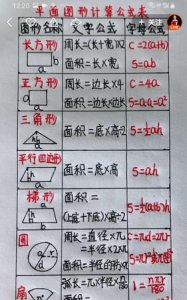 12:20
面图形计算公式表
图形名称 文字公式 字母公式
长方形 周长=(长+宽)×2 C=2(a+b)
b 面积=长×宽 S=ab
a
正方形 周长=边长×4 C=4a
a 面积=边长×边长 S=a·a=a²
a
三角形 面积=底×高÷2 S=½ah
h
a
平行四边形 面积=底×高 S=ah
h
a
梯形 面积=
a (上底+下底)×高÷2 S=½(a+b)h
h
b
圆 周长=直径×π C=πd=2πr
=半径×2π
r 面积=半径的平方×π
d
扇 弧长=